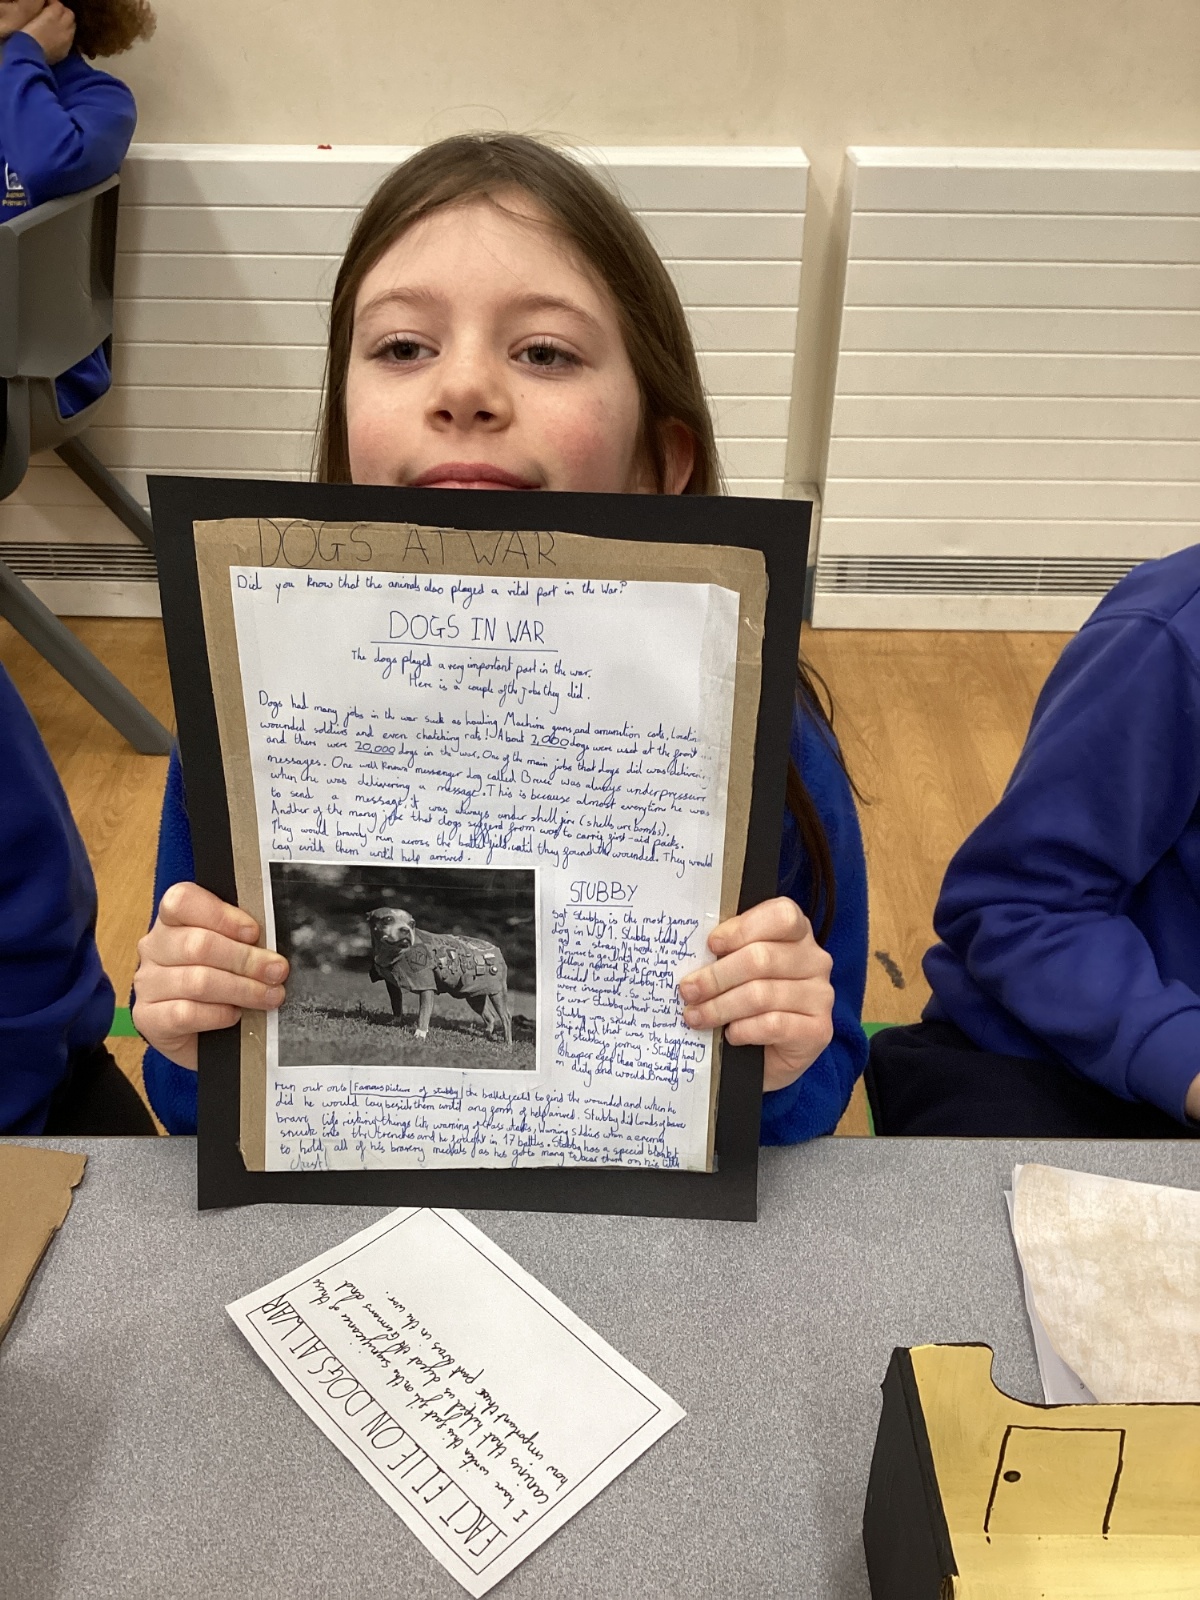 DOGS AT WAR
Did you know that the animals also played a vital part in the War?
DOGS IN WAR
The dogs played a very important part in the war.
Here is a couple of the jobs they did.
Dogs had many jobs in the war such as hauling Machine guns and ammunition cats,
wounded soldiers and even chatching rats! About 2,000 dogs were used at the front
and there were 20,000 dogs in the war. One of the main jobs that dogs did was
messages. One well known messenger dog called Bruce was always under
when he was delivering a message. This is because almost everytime he was
to send a message it was always under shell fire (shells are bombs).
Another of the many jobs that dogs from was to carrie first-aid packs.
They would bravely run across the until they found the wounded. They would
lay with them until help arrived.
STUBBY
Sgt Stubby is the most famous
dog in WW1. Stubby started of
as a stray. No home. No owner.
Nowere to go. Until one day a
fellow named Rob Conroy
decided to adopt stubby. The
were So when
to war Stubby went with
Stubby was snuck on board
ship and that was the beggining
of stubbys jorney. Stubby had
than any dog
on duty and would Bravely
run out onto the to find the wounded and when he
Famous picture of stubby
did he would lay beside them until any form of help arived. Stubby did loads of
brave life risking things like warning of gass attacks, warning soldiers when a enemy
snuck into the trenches and he fought in 17 battles. Stubby has a special blanket
to hold all of his bravery medals as he got to many to bear them on his little
chest!
FACT FILE ON DOGS AT WAR
I have writen this fact file on the significance of these
canines that helped us defeat the Germans and
how important there part was in the war.
Primary